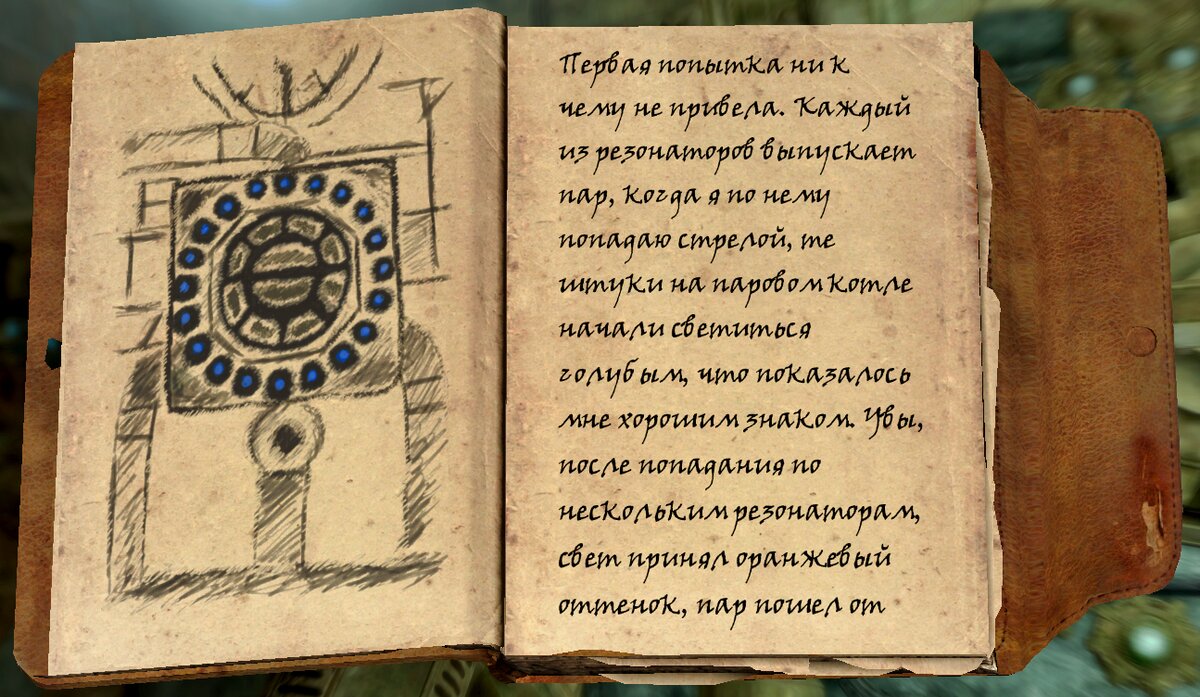 Первая попытка ни к
чему не привела. Каждый
из резонаторов выпускает
пар, когда я по нему
попадаю стрелой, те
штуки на паровом котле
начали светиться
голубым, что показалось
мне хорошим знаком. Увы,
после попадания по
нескольким резонаторам,
свет принял оранжевый
оттенок, пар пошел от